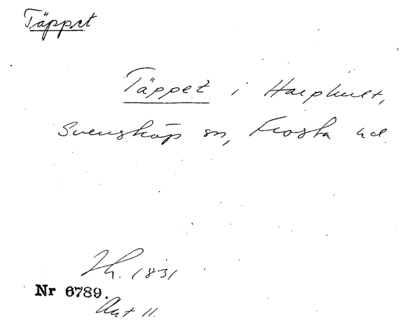 Täppet
Täppet i Harphult,
Svensköp sn, Frosta hd
Th. 1831
Nr 6789.
Akt 11.